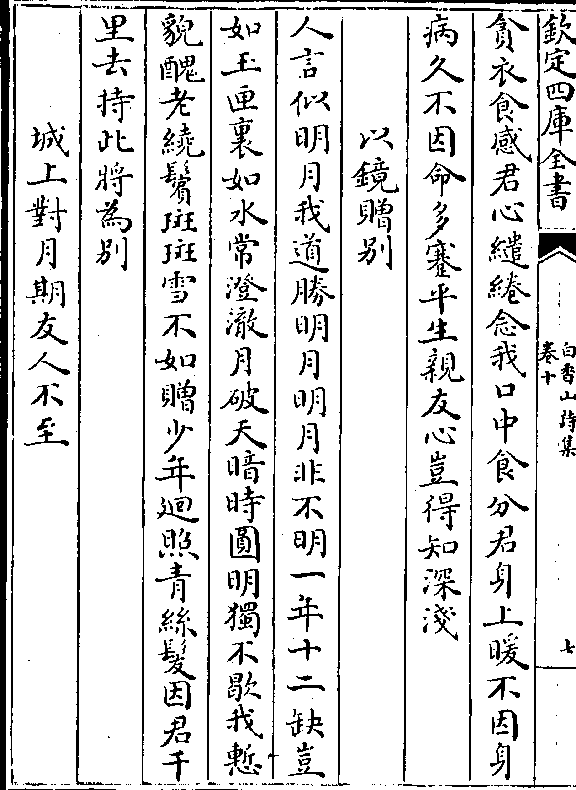 欽定四庫全書
白香山詩集
卷十
七
貪衣食感君心繾綣念我口中食分君身上暖不因身
病久不因命多蹇平生親友心豈得知深淺
以鏡贈别
人言似明月我道勝明月明月非不明一年十二缺豈
如玉匣裏如水常澄澈月破天暗時圓明獨不歇我慙
貌醜老繞鬢斑斑雪不如贈少年迴照青絲髮因君千
里去持此將為别
城上對月期友人不至